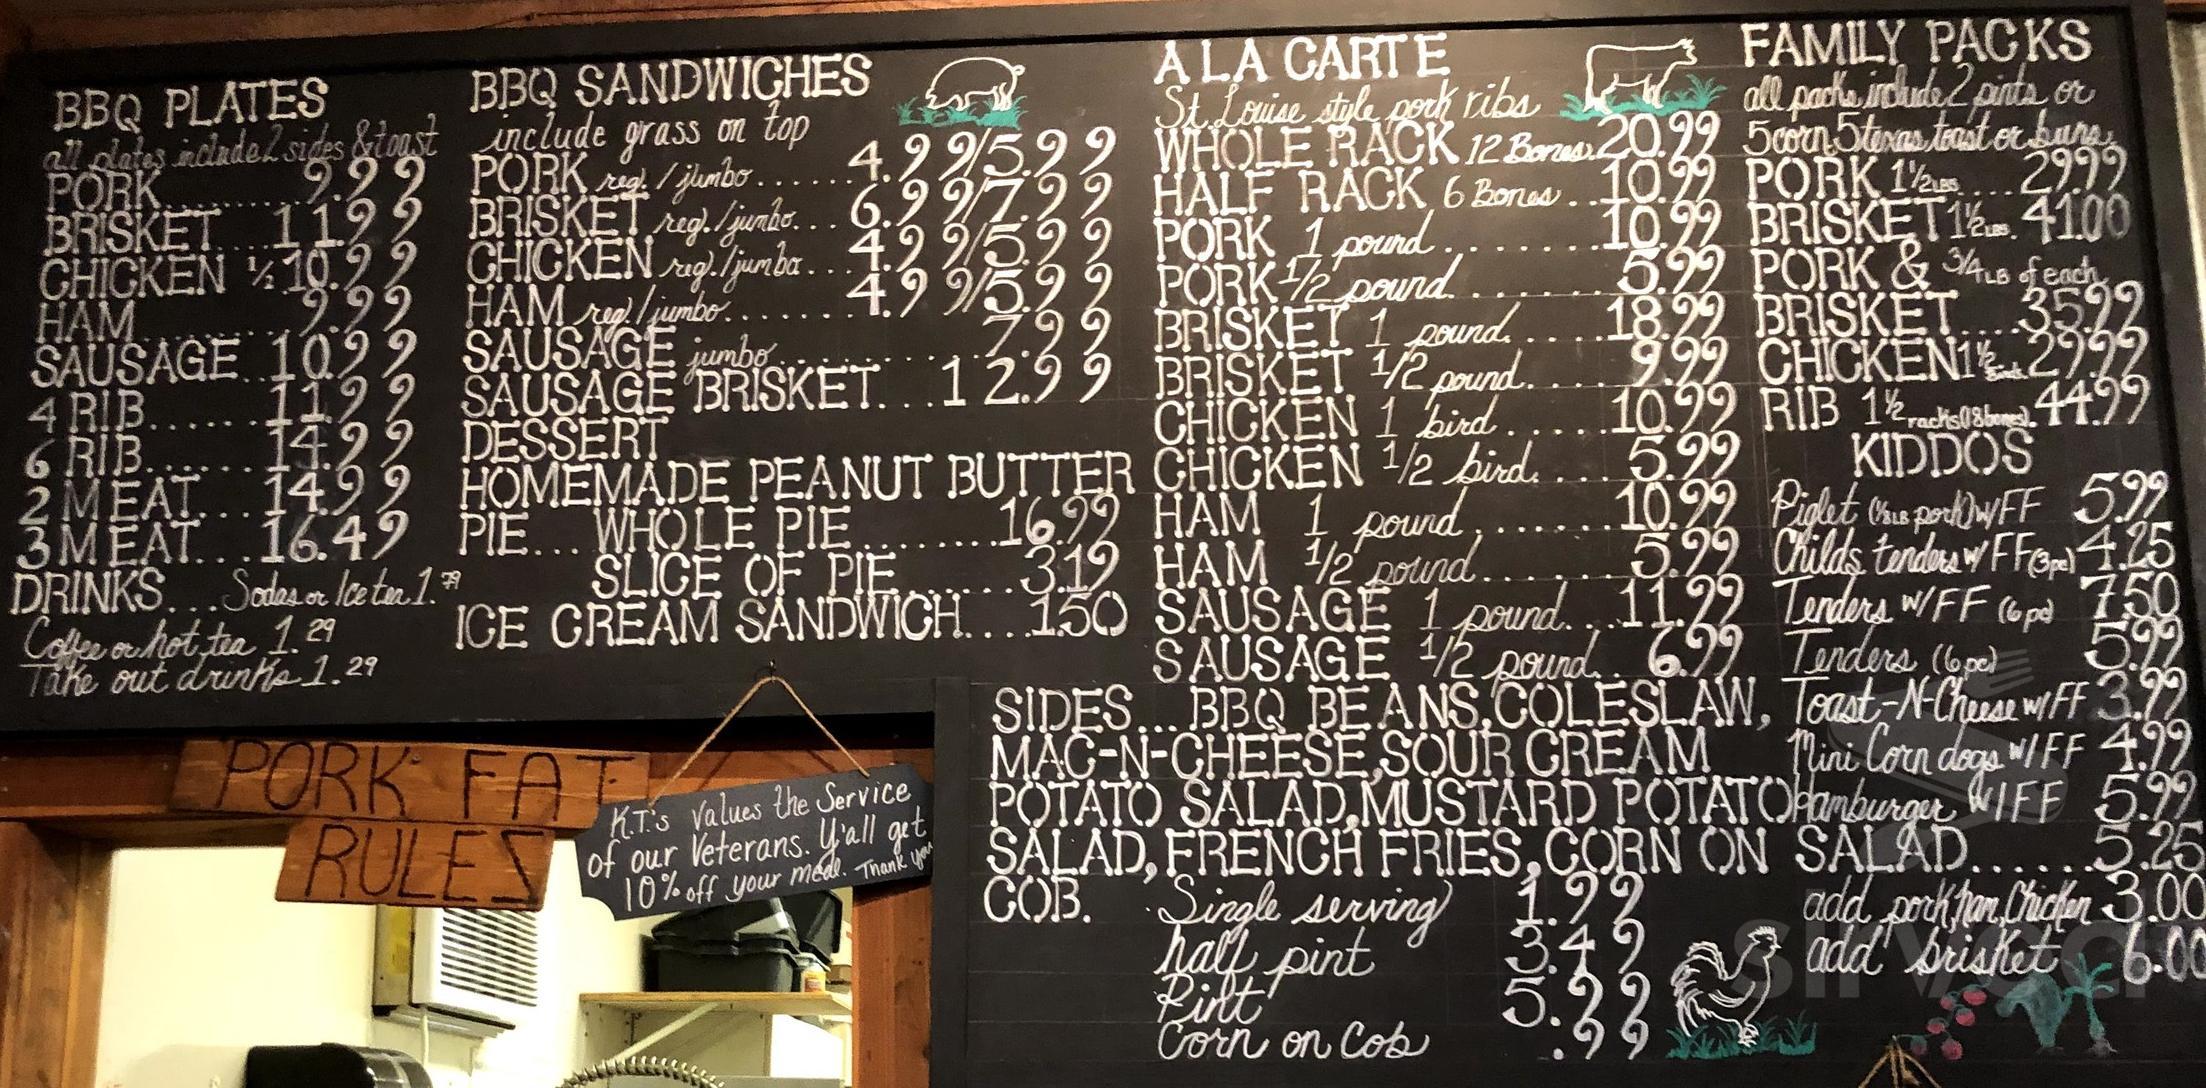 BBQ PLATES
all plates include 2 sides & toast
PORK........9.99
BRISKET...11.99
CHICKEN ½.10.99
HAM.........9.99
SAUSAGE..10.99
4 RIB......11.99
6 RIB......14.99
2 MEAT...14.99
3 MEAT...16.49
DRINKS...Sodas or Ice tea 1.79
Coffee or hot tea 1.29
Take out drinks 1.29
BBQ SANDWICHES
include grass on top
PORK reg./jumbo......4.99/5.99
BRISKET reg./jumbo...6.99/7.99
CHICKEN reg./jumbo...4.99/5.99
HAM reg/jumbo.......4.99/5.99
SAUSAGE jumbo..........7.99
SAUSAGE BRISKET...12.99
DESSERT
HOMEMADE PEANUT BUTTER
PIE... WHOLE PIE.......16.99
SLICE OF PIE.....3.19
ICE CREAM SANDWICH....1.50
A LA CARTE
St. Louise style pork ribs
WHOLE RACK 12 Bones.20.99
HALF RACK 6 Bones..10.99
PORK 1 pound.......10.99
PORK 1/2 pound.......5.99
BRISKET 1 pound.....18.99
BRISKET 1/2 pound....9.99
CHICKEN 1 bird.....10.99
CHICKEN 1/2 bird.....5.99
HAM 1 pound.......10.99
HAM 1/2 pound......5.99
SAUSAGE 1 pound...11.99
SAUSAGE 1/2 pound..6.99
SIDES...BBQ BEANS,COLESLAW,
MAC-N-CHEESE,SOUR CREAM
POTATO SALAD,MUSTARD POTATO
SALAD,FRENCH FRIES,CORN ON
COB.
Single serving 1.99
half pint 3.49
Pint 5.99
Corn on Cob .99
FAMILY PACKS
all packs include 2 pints or
5 corn, 5 texas toast or buns.
PORK 1½ LBS....29.99
BRISKET 1½ LBS. 41.00
PORK & 3/4 LB of each
BRISKET....35.99
CHICKEN 1½ 29.99
RIB 1½ racks(18 bones).44.99
KIDDOS
Piglet (1/8 LB pork) w/FF 5.99
Childs tenders w/FF (3pc) 4.25
Tenders w/FF (6pc) 7.50
Tenders (6pc) 5.99
Toast-N-Cheese w/FF 3.99
Mini Corn dogs w/FF 4.99
Hamburger W/FF 5.99
SALAD......5.25
add pork,ham,Chicken 3.00
add brisket 6.00
PORK FAT
RULES
K.T.'s values the Service
of our Veterans. Y'all get
10% off your meal. Thank you
sirved